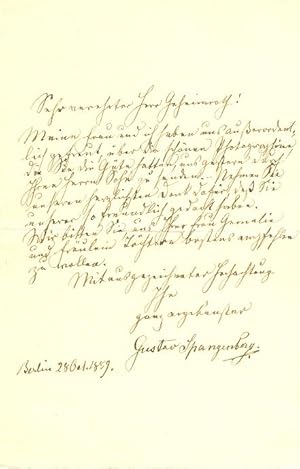 Sehr verehrter Herr Geheimrath!
Meine Frau und ich haben uns außerordent-
lich gefreut, über die schönen Photographien
die Sie die Güte hatten, uns gestern durch
Ihren Herrn Sohn zu senden. Nehmen Sie
unseren herzlichsten Dank dafür daß Sie
unserer so freundlich gedacht haben.
Wir bitten Sie, uns Ihrer Frau Gemalin
und Fräulein Töchtern bestens empfehlen
zu wollen.
Mit ausgezeichneter Hochachtung
Ihr
ganz ergebenster
Gustav Spangenberg.
Berlin 28 Oct. 1889.